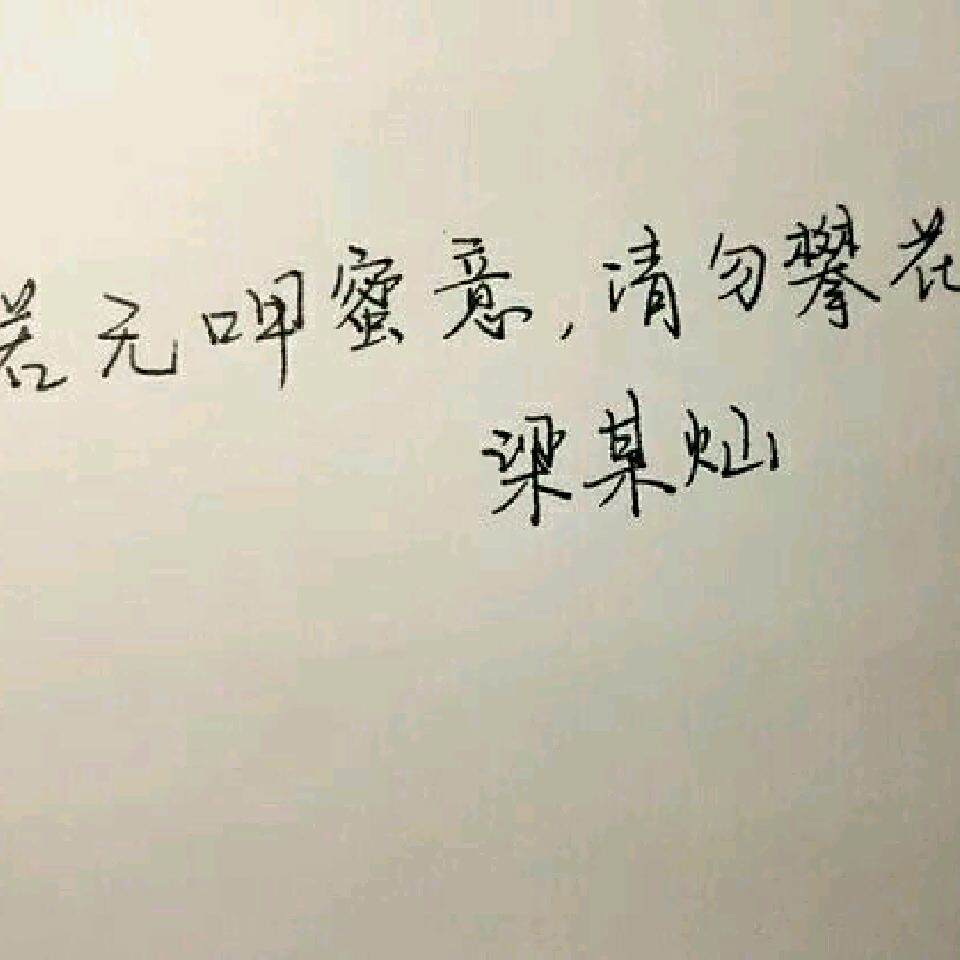 若无呷蜜意,请勿攀花
梁某灿